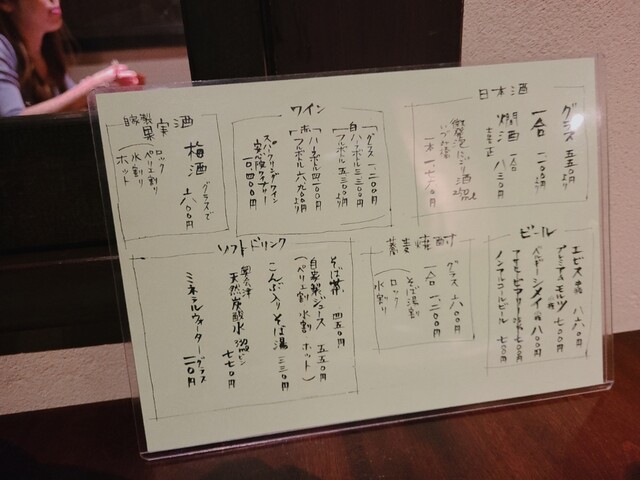 日本酒
グラス 五五〇円より
一合 一一〇〇円より
燗酒 一合 八三〇円
微発泡にごり酒 300ml
一本 一七六〇円
ワイン
グラス 一一〇〇円
白 ハーフボトル 三三〇〇円
フルボトル 五五〇〇円より
赤 ハーフボトル
フルボトル 六九〇〇円より
スパークリングワイン
安心院ワイナリー
自家製
果実酒
梅酒 グラスで 六八〇円
ロック
ペリエ割り
水割り
ホット
ビール
エビス
プレミアムモルツ 七〇〇円
ベルギー シメイ
ノンアルコールビール 七〇〇円
蕎麦焼酎
グラス 六八〇円
一合 一二〇〇円
そば湯割り
ロック
水割り
ソフトドリンク
そば茶 四五〇円
自家製ジュース 五五〇円
(ペリエ割 水割 ホット)
こんぶ入りそば湯 三三〇円
奥会津
天然炭酸水 七七〇円
ミネラルウォーター グラス